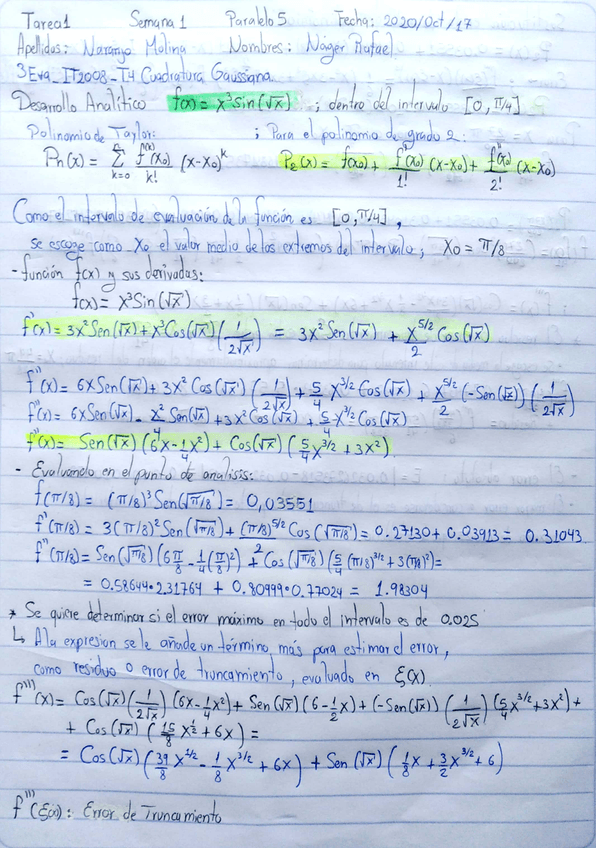 Tarea1 Semana 1 Paralelo 5 Fecha: 2020/Oct/17
Apellidos: Naranjo Molina Nombres: Náger Rafael
3Eva_IT2008_T4 Cuadratura Gaussiana.
Desarrollo Analítico f(x) = x³Sin(√x) ; dentro del intervalo [0, π/4]
Polinomio de Taylor: ; Para el polinomio de grado 2:
Pn(x) = Σ_{k=0}^{n} f^{(k)}(x₀)/k! (x-x₀)^k P₂(x) = f(x₀) + f'(x₀)/1! (x-x₀) + f''(x₀)/2! (x-x₀)
Como el intervalo de evaluación de la función es [0, π/4],
se escoge como x₀ el valor medio de los extremos del intervalo; x₀ = π/8
- función f(x) y sus derivadas:
f(x) = x³Sin(√x)
f'(x) = 3x²Sen(√x) + x³Cos(√x)(1/2√x) = 3x²Sen(√x) + x^{5/2}/2 Cos(√x)
f''(x) = 6xSen(√x) + 3x²Cos(√x)(1/2√x) + 5/4 x^{3/2}Cos(√x) + x^{5/2}/2 (-Sen(√x))(1/2√x)
f''(x) = 6xSen(√x) - x²/4 Sen(√x) + 3x²Cos(√x) + 5/4 x^{3/2}Cos(√x)
f''(x) = Sen(√x)(6x - 1/4 x²) + Cos(√x)(5/4 x^{3/2} + 3x²)
- Evaluando en el punto de analisis:
f(π/8) = (π/8)³Sen(√π/8) = 0,03551
f'(π/8) = 3(π/8)²Sen(√π/8) + (π/8)^{5/2}/2 Cos(√π/8) = 0.27130 + 0.03913 = 0.31043
f''(π/8) = Sen(√π/8)(6π/8 - 1/4(π/8)²) + Cos(√π/8)(5/4(π/8)^{3/2} + 3(π/8)²) =
= 0.58644•2.31764 + 0.80999•0.77024 = 1.98304
* Se quiere determinar si el error máximo en todo el intervalo es de 0.025
↳ A la expresion se le añade un término más para estimar el error,
como residuo o error de truncamiento, evaluado en ξ(x)
f'''(x) = Cos(√x)(1/2√x)(6x - 1/4 x²) + Sen(√x)(6 - 1/2 x) + (-Sen(√x))(1/2√x)(5/4 x^{3/2} + 3x²) +
+ Cos(√x)(15/8 x^{1/2} + 6x) =
= Cos(√x)(39/8 x^{1/2} - 1/8 x^{3/2} + 6x) + Sen(√x)(1/8 x + 3/2 x^{3/2} + 6)
f'''(ξ(x)): Error de Truncamiento